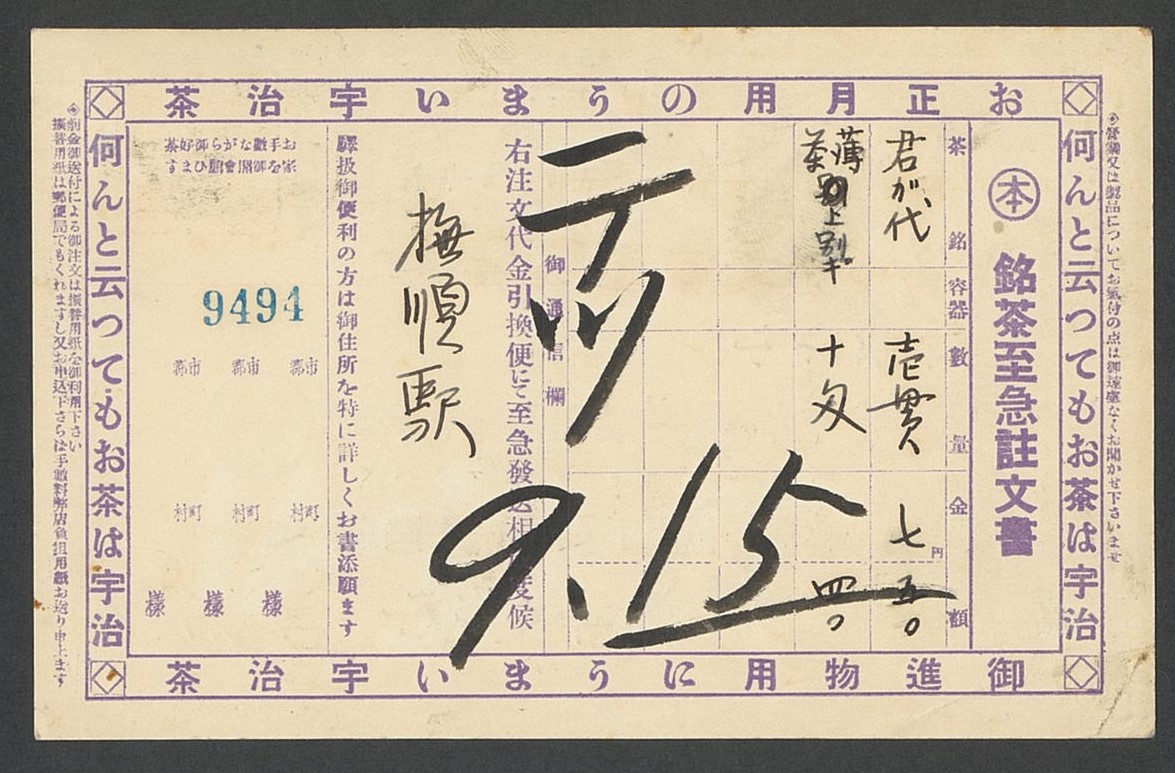 お正月用のうまい宇治茶
◉営業又は製品についてお気付の点は御遠慮なくお聞かせ下さいませ
何んと云つてもお茶は宇治
本
銘茶至急註文書
茶銘
容器
數量
金額
君が代
壱貫
七円
五〇
薄茶
上別ギ
十匁
四〇
御通信欄
9.15
右注文代金引換便にて至急發送相度候
撫順駅
驛扱御便利の方は御住所を特に詳しくお書添願ます
お手數ながら御好茶
家を御紹會願ひます
9494
郡市
郡市
郡市
村町
村町
村町
樣
樣
樣
何んと云つてもお茶は宇治
◉前金御送付による御注文は振替用紙を御利用下さい
振替用紙は郵便局でもくれますし又お申込下さらば手數料弊店負担用紙お送り申上ます
御進物用にうまい宇治茶